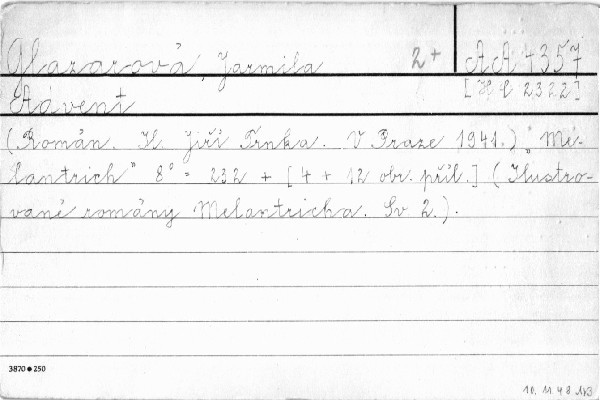 Glazarová, Jarmila 2+ AA 4357
Advent [H f 2322]
(Román. Il. Jiří Trnka. V Praze 1941.) "Me-
lantrich" 8° - 232 + [4 + 12 obr. příl.] (Ilustro-
vané romány Melantricha. Sv. 2.).
3870 • 250
10. 11 48